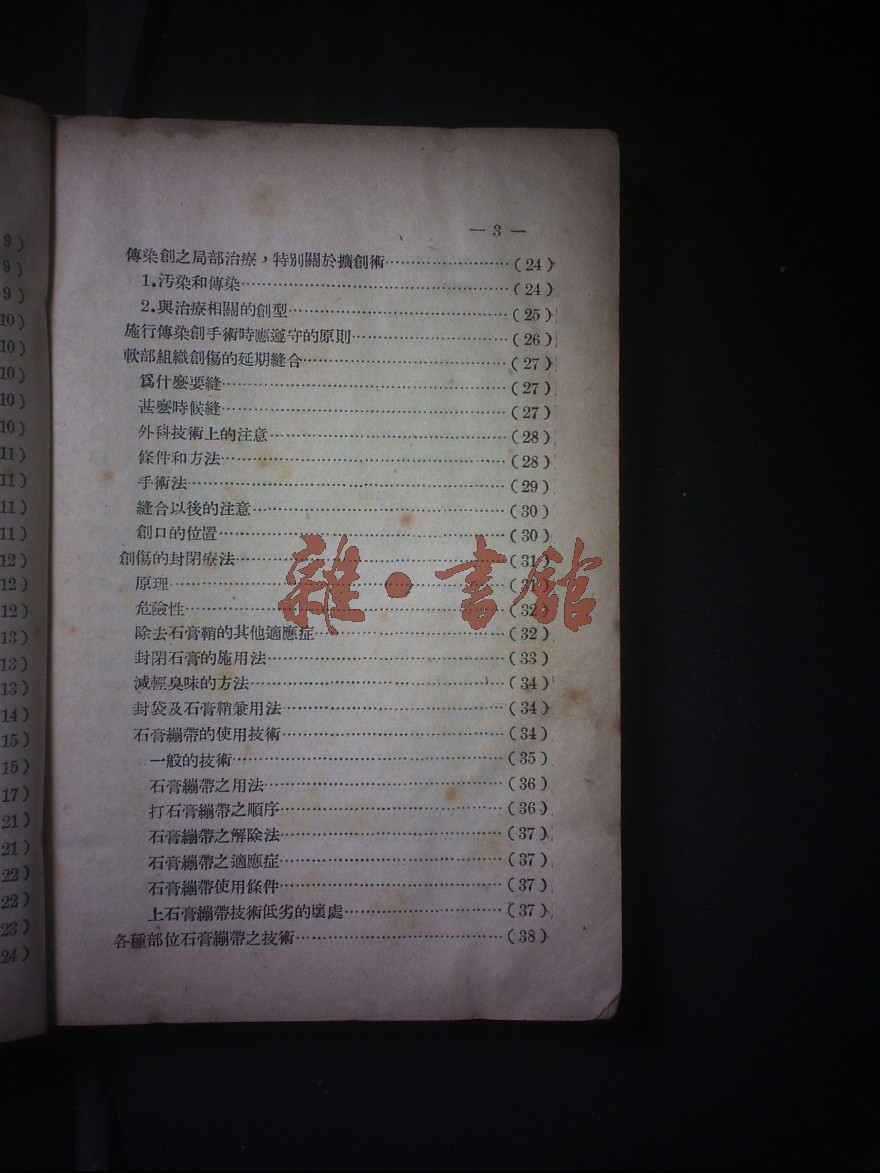 9)
9)
9)
10)
10)
10)
10)
10)
11)
11)
11)
11)
12)
12)
12)
13)
13)
13)
14)
15)
15)
17)
21)
21)
22)
22)
23)
24)
— 3 —
傳染創之局部治療，特別關於擴創術……………………(24)
1.汚染和傳染……………………(24)
2.與治療相關的創型……………………(25)
施行傳染創手術時應遵守的原則……………………(26)
軟部組織創傷的延期縫合……………………(27)
爲什麼要縫……………………(27)
甚麼時候縫……………………(27)
外科技術上的注意……………………(28)
條件和方法……………………(28)
手術法……………………(29)
縫合以後的注意……………………(30)
創口的位置……………………(30)
創傷的封閉療法……………………(31)
原理……………………(31)
危險性……………………(32)
除去石膏鞘的其他適應症……………………(32)
封閉石膏的施用法……………………(33)
減輕臭味的方法……………………(34)
封袋及石膏鞘兼用法……………………(34)
石膏繃帶的使用技術……………………(34)
一般的技術……………………(35)
石膏繃帶之用法……………………(36)
打石膏繃帶之順序……………………(36)
石膏繃帶之解除法……………………(37)
石膏繃帶之適應症……………………(37)
石膏繃帶使用條件……………………(37)
上石膏繃帶技術低劣的壞處……………………(37)
各種部位石膏繃帶之技術……………………(38)
雜·書館